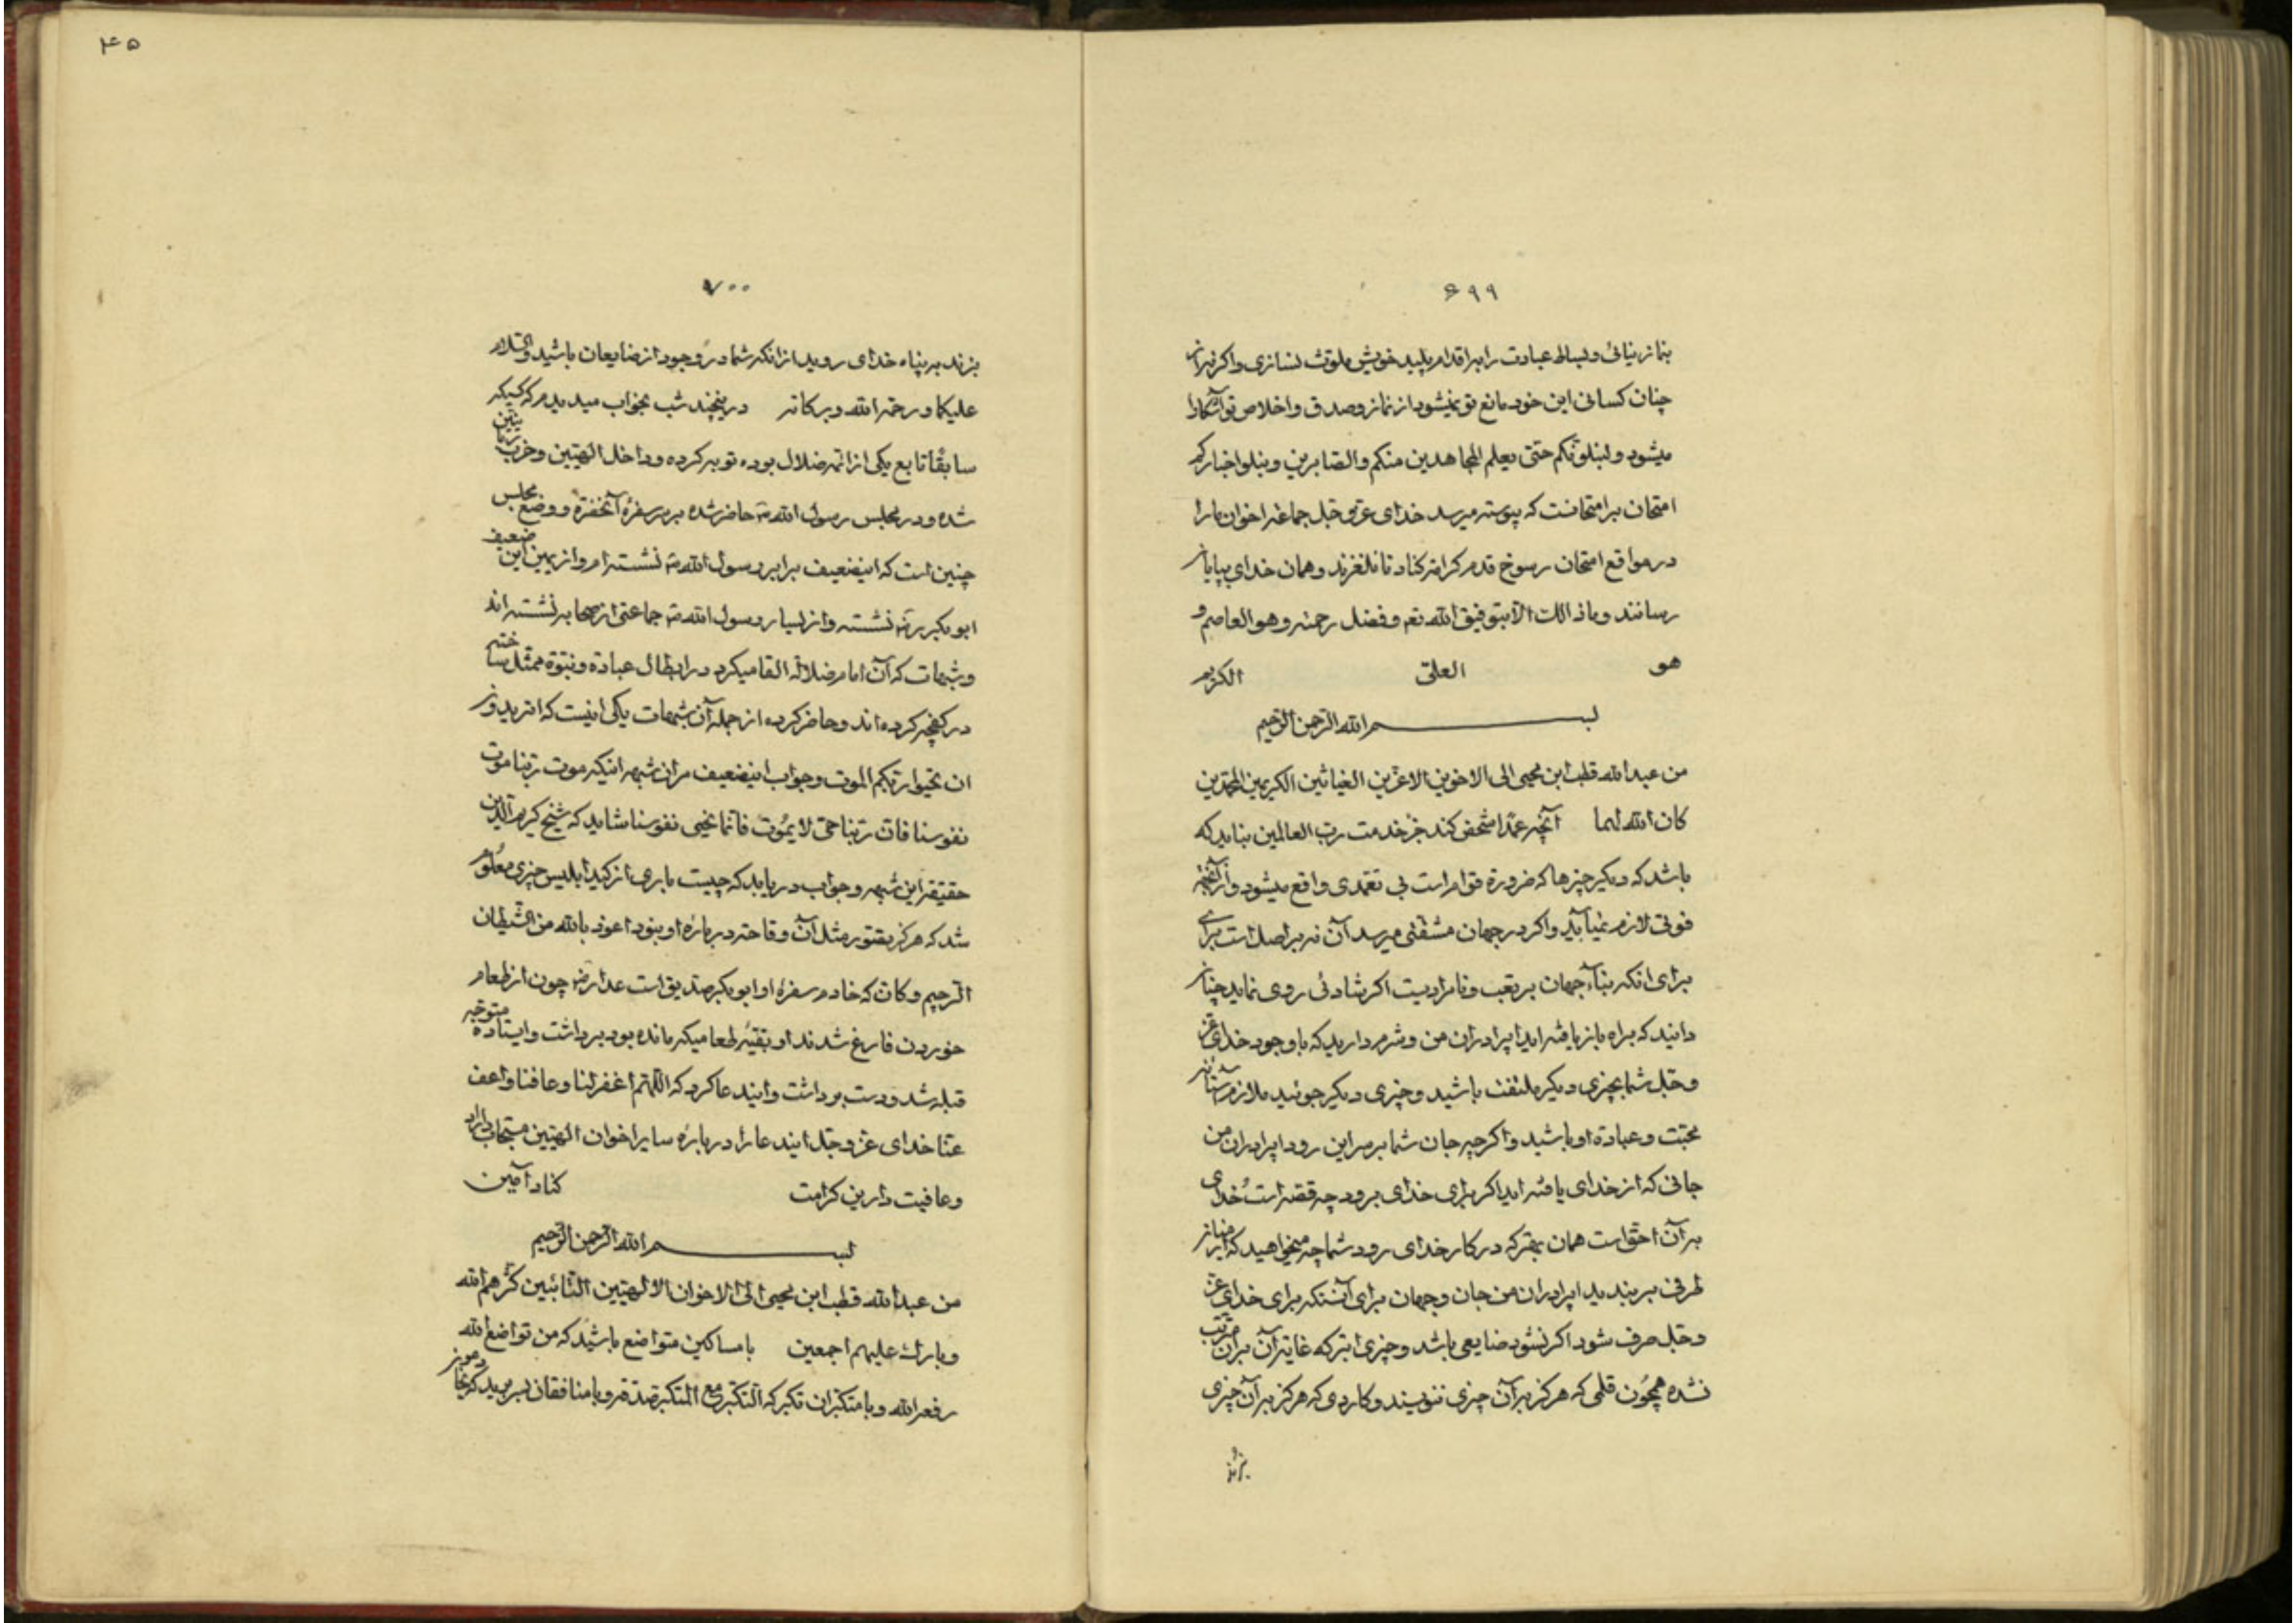 ۶۹۹
بنماز نیائی و بساط عبادت را به اقدام پلید خویش ملوث نسازی و اگر نه از
چنان کسانی این خود مانع تو نمیشود از نماز و صدق و اخلاص تو آشکارا
میشود و لنبلونکم حتی یعلم المجاهدین منکم والصابرین و نبلو اخبارکم
امتحان بر امتحانست که پیوسته میرسد خدای عز و جل جماعه اخوان ما را
در مواقع امتحان رسوخ قدم کرامه کناد تا نلغزند و همان خدای بپایان
رسانند و ما ذالک الا بتوفیق الله تع و فضل رحمته و هو العاصم و
هو العلی الکریم
بسم الله الرحمن الرحیم
من عبد الله قطب ابن محیی الی الاخوین الاعزین الغیاثین الکریمین المحمدین
کان الله لهما آنچه عمدا شخص کند جز خدمت رب العالمین نباید که
باشد که دیگر چیزها که ضرورة قوام است بی تعمدی واقع میشود و از آنچه
فوتی لازم نمیآید و اگر در جهان مشقتی میرسد آن نه بر اصل است برای
برای انکه بناء جهان بر تعب و نامرادیست اگر شادئی روی نماید چنان
دانید که براه باز یافته اید ای برادران من و شرم دارید که با وجود خدای عز
و جل شما بچیزی دیگر ملتفت باشید و چیزی دیگر جوئید ملازم آستانه
محبت و عبادة او باشید و اگر چه جان شما بر سر این رود ای برادران من
جانی که از خدای یافته اید اگر برای خدای برود چه قصه است خدای
به آن احق است همان بهتر که در کار خدای رود شما چه میخواهید که از میان
طرفی بربندید ای برادران من جان و جهان برای آنستکه برای خدای عز
و جل صرف شود اگر نشود ضایعی باشد و چیزی ابتر که غایة آن بر آن مرتب
نشده همچون قلمی که هرگز به آن چیزی ننویسند و کاردی که هرگز به آن چیزی
بزند
۴۵
۷۰۰
بزند به پناه خدای روید از انکه شما در وجود از ضایعات باشید والسلام
علیکما و رحمة الله و برکاته در پنجند شب بخواب میدیدم که کسیکه
سابقا تابع یکی از ائمه ضلال بوده توبه کرده و داخل الهیین و حزب
شده و در مجلس رسول الله حاضر شده بر سر سفره آنحضرة و وضع مجلس
چنین است که اینضعیف برابر رسول الله نشسته ام و از یمین این ضعیف
ابو بکر نشسته و از یسار رسول الله جماعتی از صحابه نشسته اند
و شبهات که آن امام ضلالة القا میکرد در ابطال عبادة و نبوة ممثل ساخته
در کفچه کرده اند و حاضر کرده از جمله آن شبهات یکی اینست که اتریدون
ان تحیوا ربکم الموت و جواب اینضعیف مر ان شبهه اینکه موت ربنا موت
نفوسنا فان ربنا حی لایموت فانما نحیی نفوسنا شاید که شیخ کریم الدین
حقیقة این شبهه و جواب دریابد که چیست باری از کید ابلیس چیزی معلوم
شد که هرگز بتصور مثل آن وقاحته درباره او نبود اعوذ بالله من الشیطان
الرجیم و کان که خادم سفره او ابو بکر صدیق است چون از طعام
خوردن فارغ شدند او بقیه طعامیکه مانده بود برداشت و ایستاده متوجه
قبله شد و دست برداشت و ایندعا کرد که اللهم اغفر لنا و عافنا و اعف
عنا خدای عز و جل ایندعا را درباره سایر اخوان الهیین مستجاب داراد
و عافیت دارین کرامت کناد آمین
بسم الله الرحمن الرحیم
من عبد الله قطب ابن محیی الی الاخوان الالهیین التائبین کثرهم الله
و بارک علیهم اجمعین با مساکین متواضع باشید که من تواضع لله
رفعه الله و با متکبران تکبر که التکبر مع المتکبر صدقه و با منافقان بسر برید